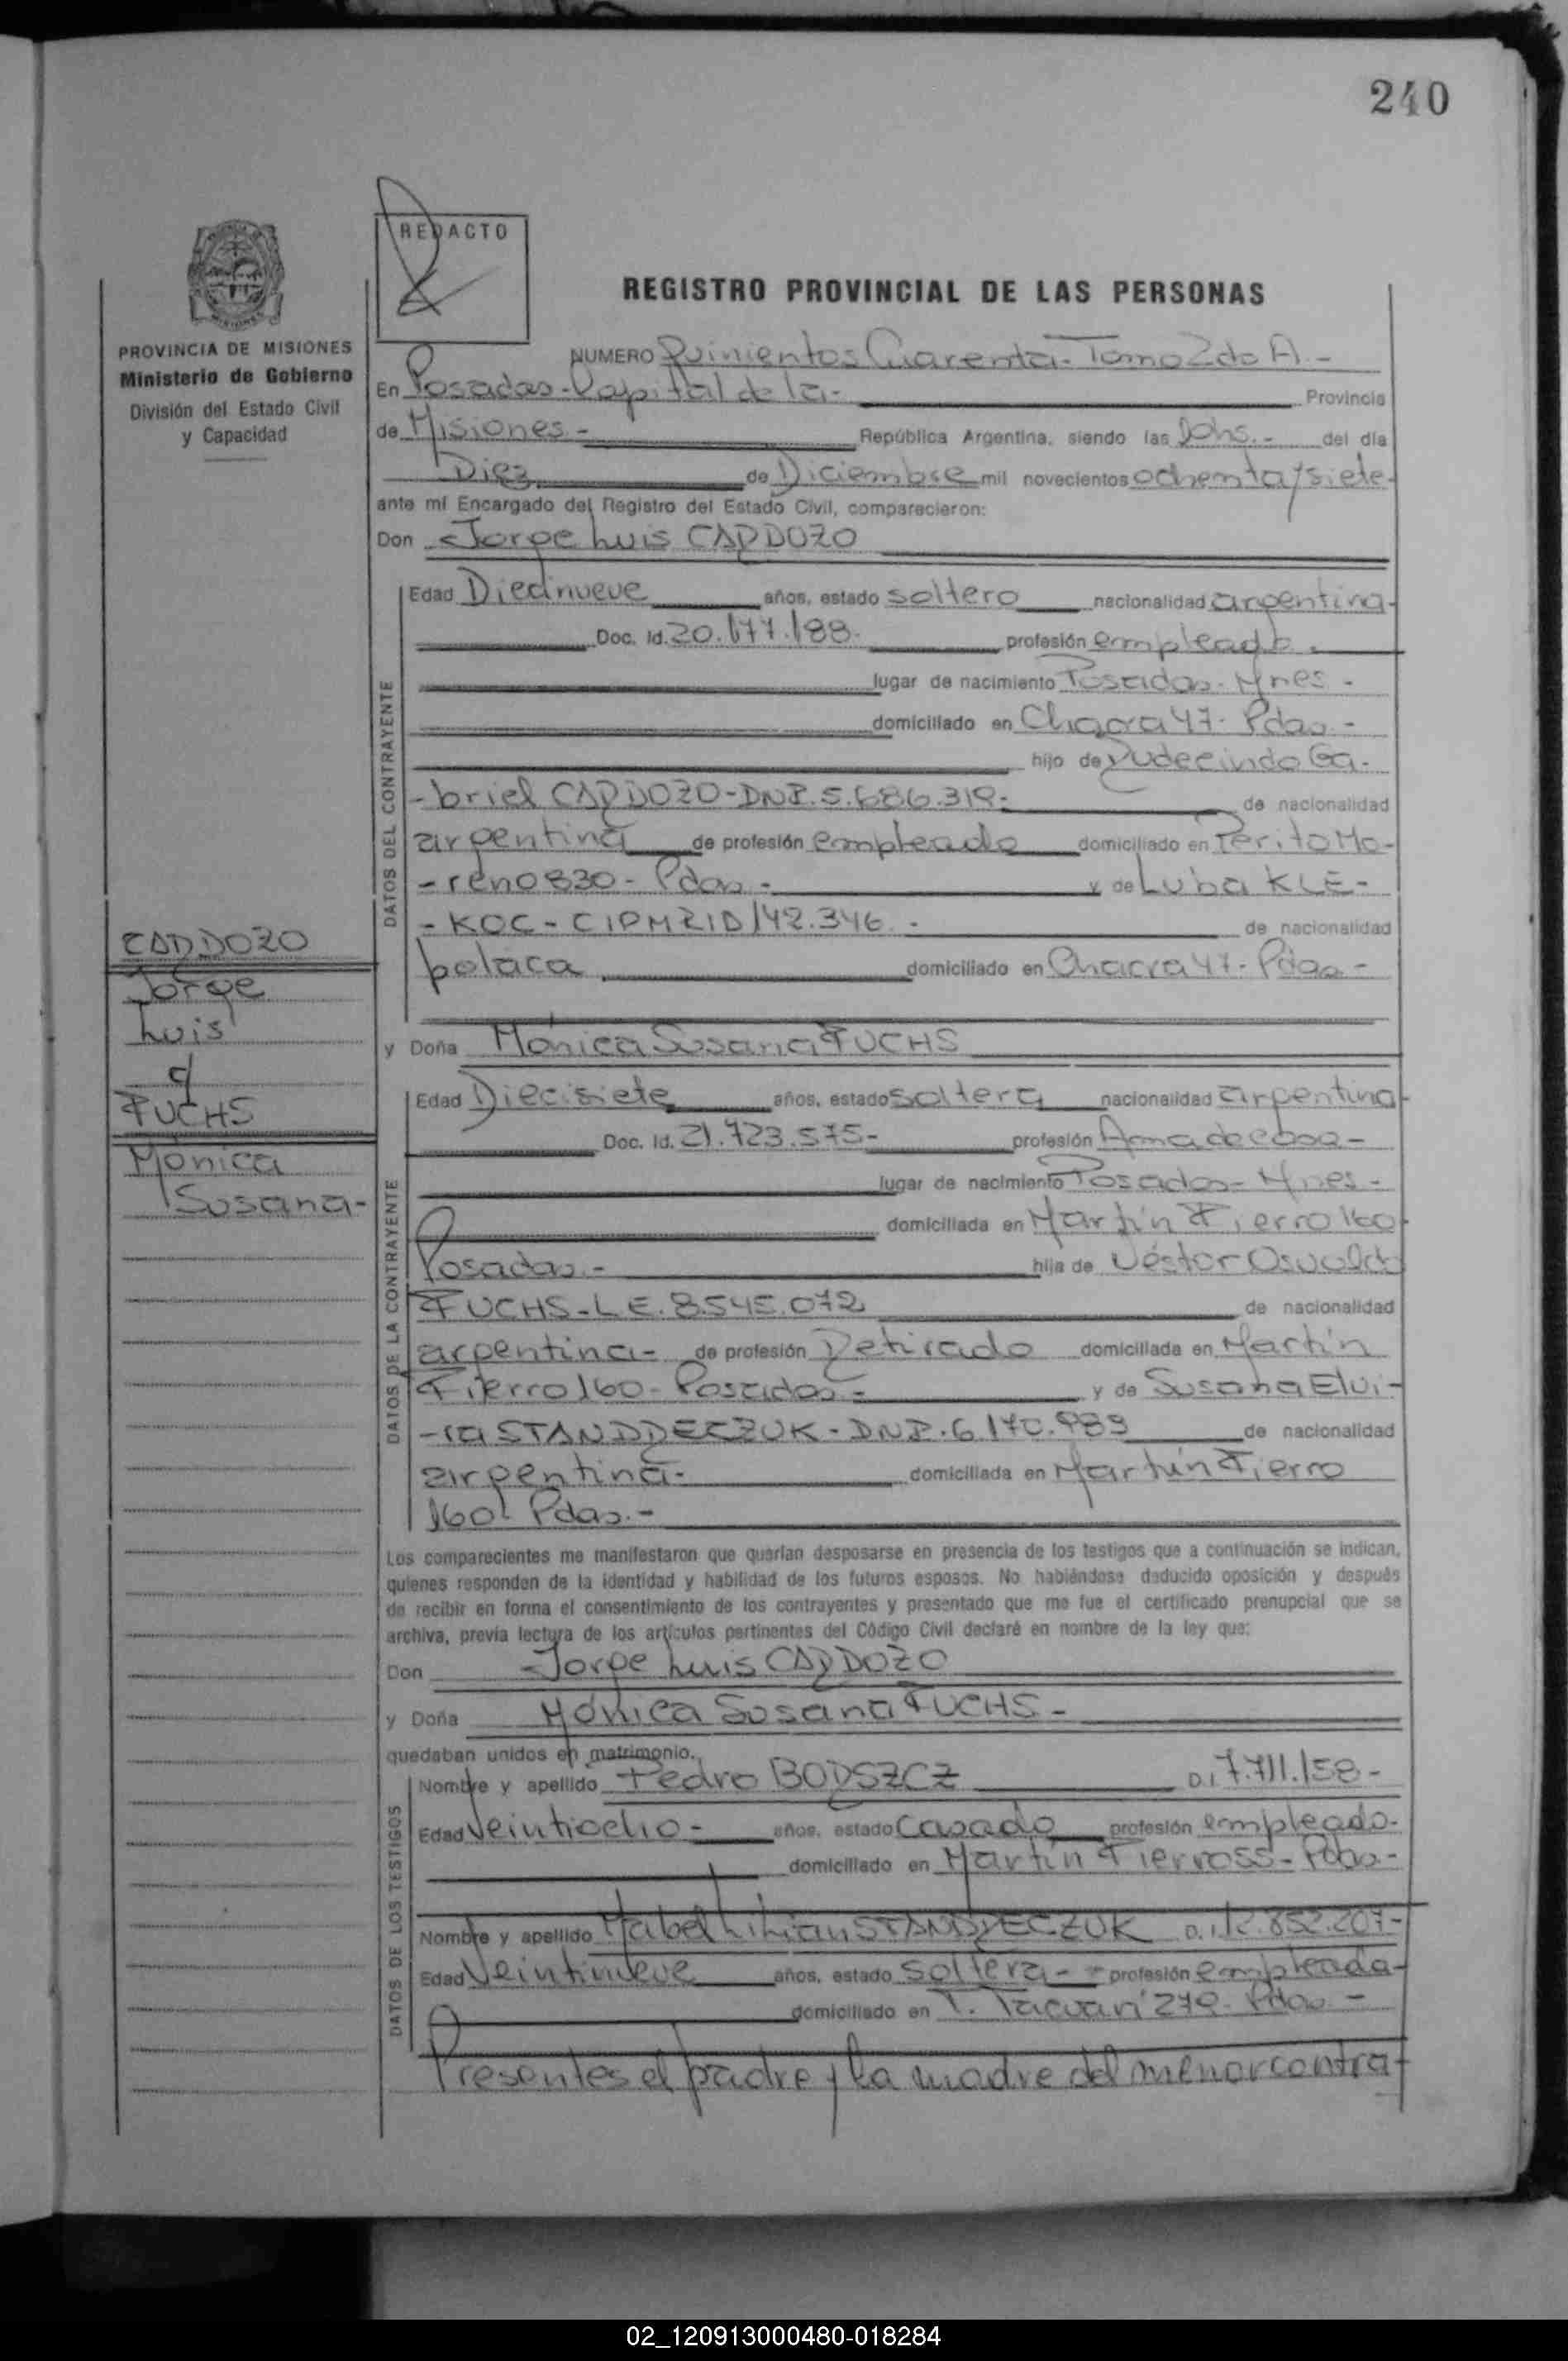 240
REDACTO
REGISTRO PROVINCIAL DE LAS PERSONAS
PROVINCIA DE MISIONES
Ministerio de Gobierno
División del Estado Civil
y Capacidad
NUMERO Quinientos Cuarenta - Tomo 2do A.-
En Posadas - Capital de la - Provincia
de Misiones.- República Argentina, siendo las 10hs.- del día
Diez de Diciembre mil novecientos ochenta y siete-
ante mí Encargado del Registro del Estado Civil, comparecieron:
Don Jorge Luis CARDOZO
DATOS DEL CONTRAYENTE
Edad Diecinueve años, estado soltero nacionalidad argentina-
Doc. Id. 20.177.188.- profesión empleado.
lugar de nacimiento Posadas - Mnes -
domiciliado en Chacra 47 - Pdas.-
hijo de Rudecindo Ga-
-briel CARDOZO - DNI. 5.686.319- de nacionalidad
argentina de profesión empleado domiciliado en Perito Mo-
-reno 830 - Pdas - y de Luba KLE-
-KOC - CIPMRID 142.346.- de nacionalidad
polaca domiciliado en Chacra 47 - Pdas -
CARDOZO
Jorge
Luis
c/
FUCHS
Mónica
Susana-
y Doña Mónica Susana FUCHS
DATOS DE LA CONTRAYENTE
Edad Diecisiete años, estado soltera nacionalidad argentina-
Doc. Id. 21.723.575- profesión Ama de casa -
lugar de nacimiento Posadas - Mnes -
domiciliada en Martín Fierro 160-
Posadas.- hija de Néstor Osvaldo
FUCHS - L.E. 8.545.072 de nacionalidad
argentina - de profesión Retirado domiciliada en Martín
Fierro 160 - Posadas - y de Susana Elvi-
-ra STANDRECZUK - DNI. 6.170.989 de nacionalidad
argentina - domiciliada en Martín Fierro
160 Pdas.-
Los comparecientes me manifestaron que querían desposarse en presencia de los testigos que a continuación se indican,
quienes responden de la identidad y habilidad de los futuros esposos. No habiéndose deducido oposición y después
de recibir en forma el consentimiento de los contrayentes y presentado que me fue el certificado prenupcial que se
archiva, previa lectura de los artículos pertinentes del Código Civil declaré en nombre de la ley que:
Don Jorge Luis CARDOZO
y Doña Mónica Susana FUCHS -
quedaban unidos en matrimonio.
DATOS DE LOS TESTIGOS
Nombre y apellido Pedro BORSZCZ D.I 7.711.158-
Edad Veintiocho - años, estado Casado profesión empleado-
domiciliado en Martín Fierro 55 - Pdas.-
Nombre y apellido Mabel Lilian STANDRECZUK D.I. 12.852.207-
Edad Veintinueve años, estado soltera - profesión empleada-
domiciliado en T. Tacuarí 279 - Pdas -
Presentes el padre y la madre del menor contra-
02_120913000480-018284